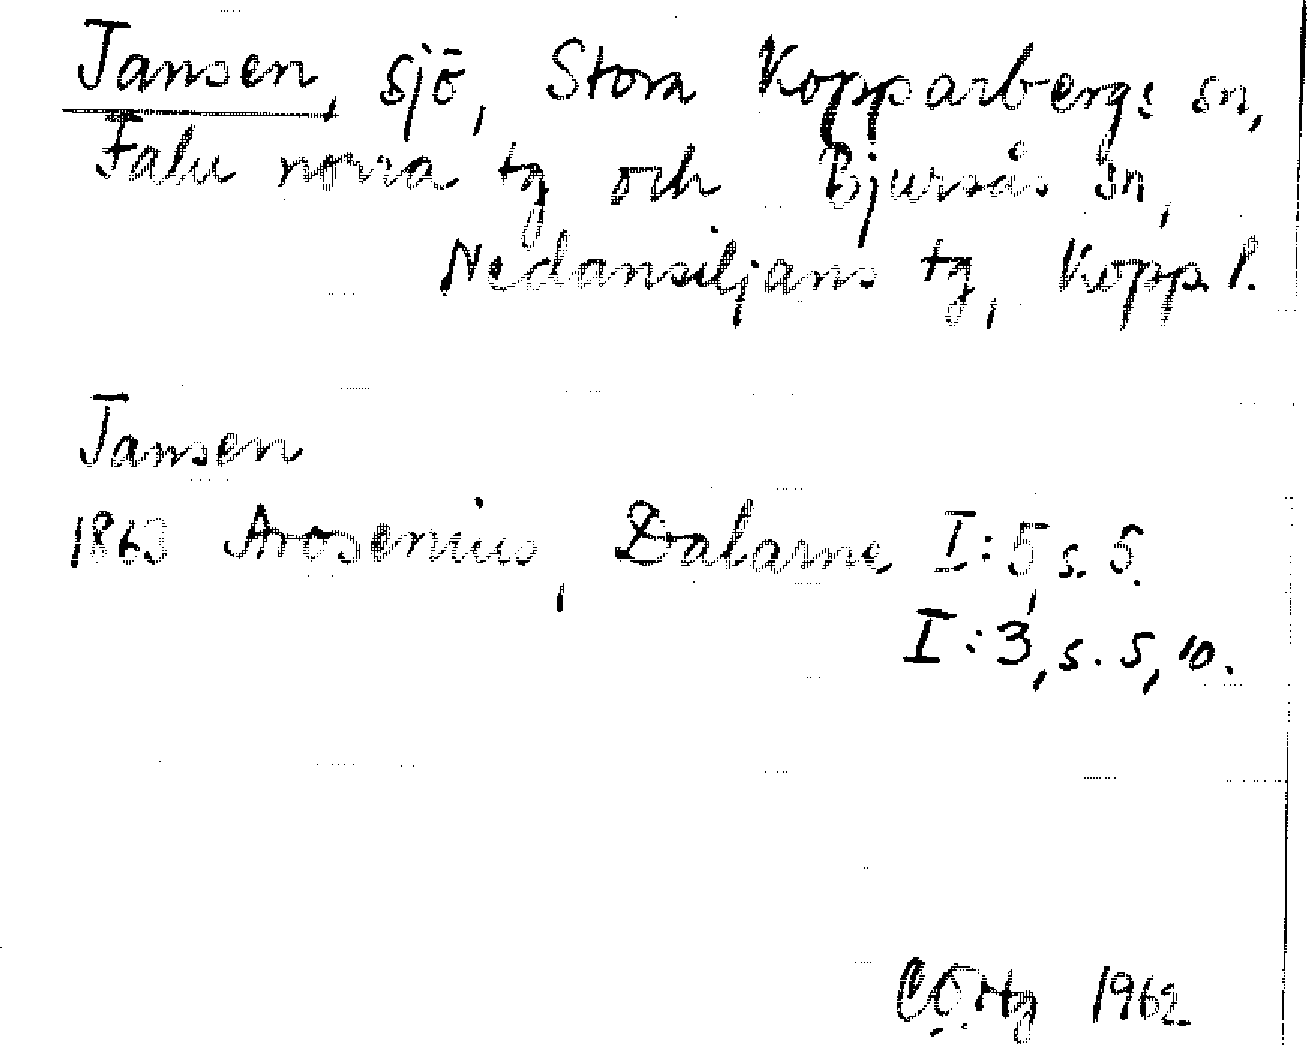 Jansen, sjö, Stora Kopparbergs sn,
Falu norra tg och Bjursås sn,
Nedansiljans tg, Kopp. l.
Jansen
1863 Arosenius, Dalarne I:5, s. 5.
I:3, s. 5, 10.
1962